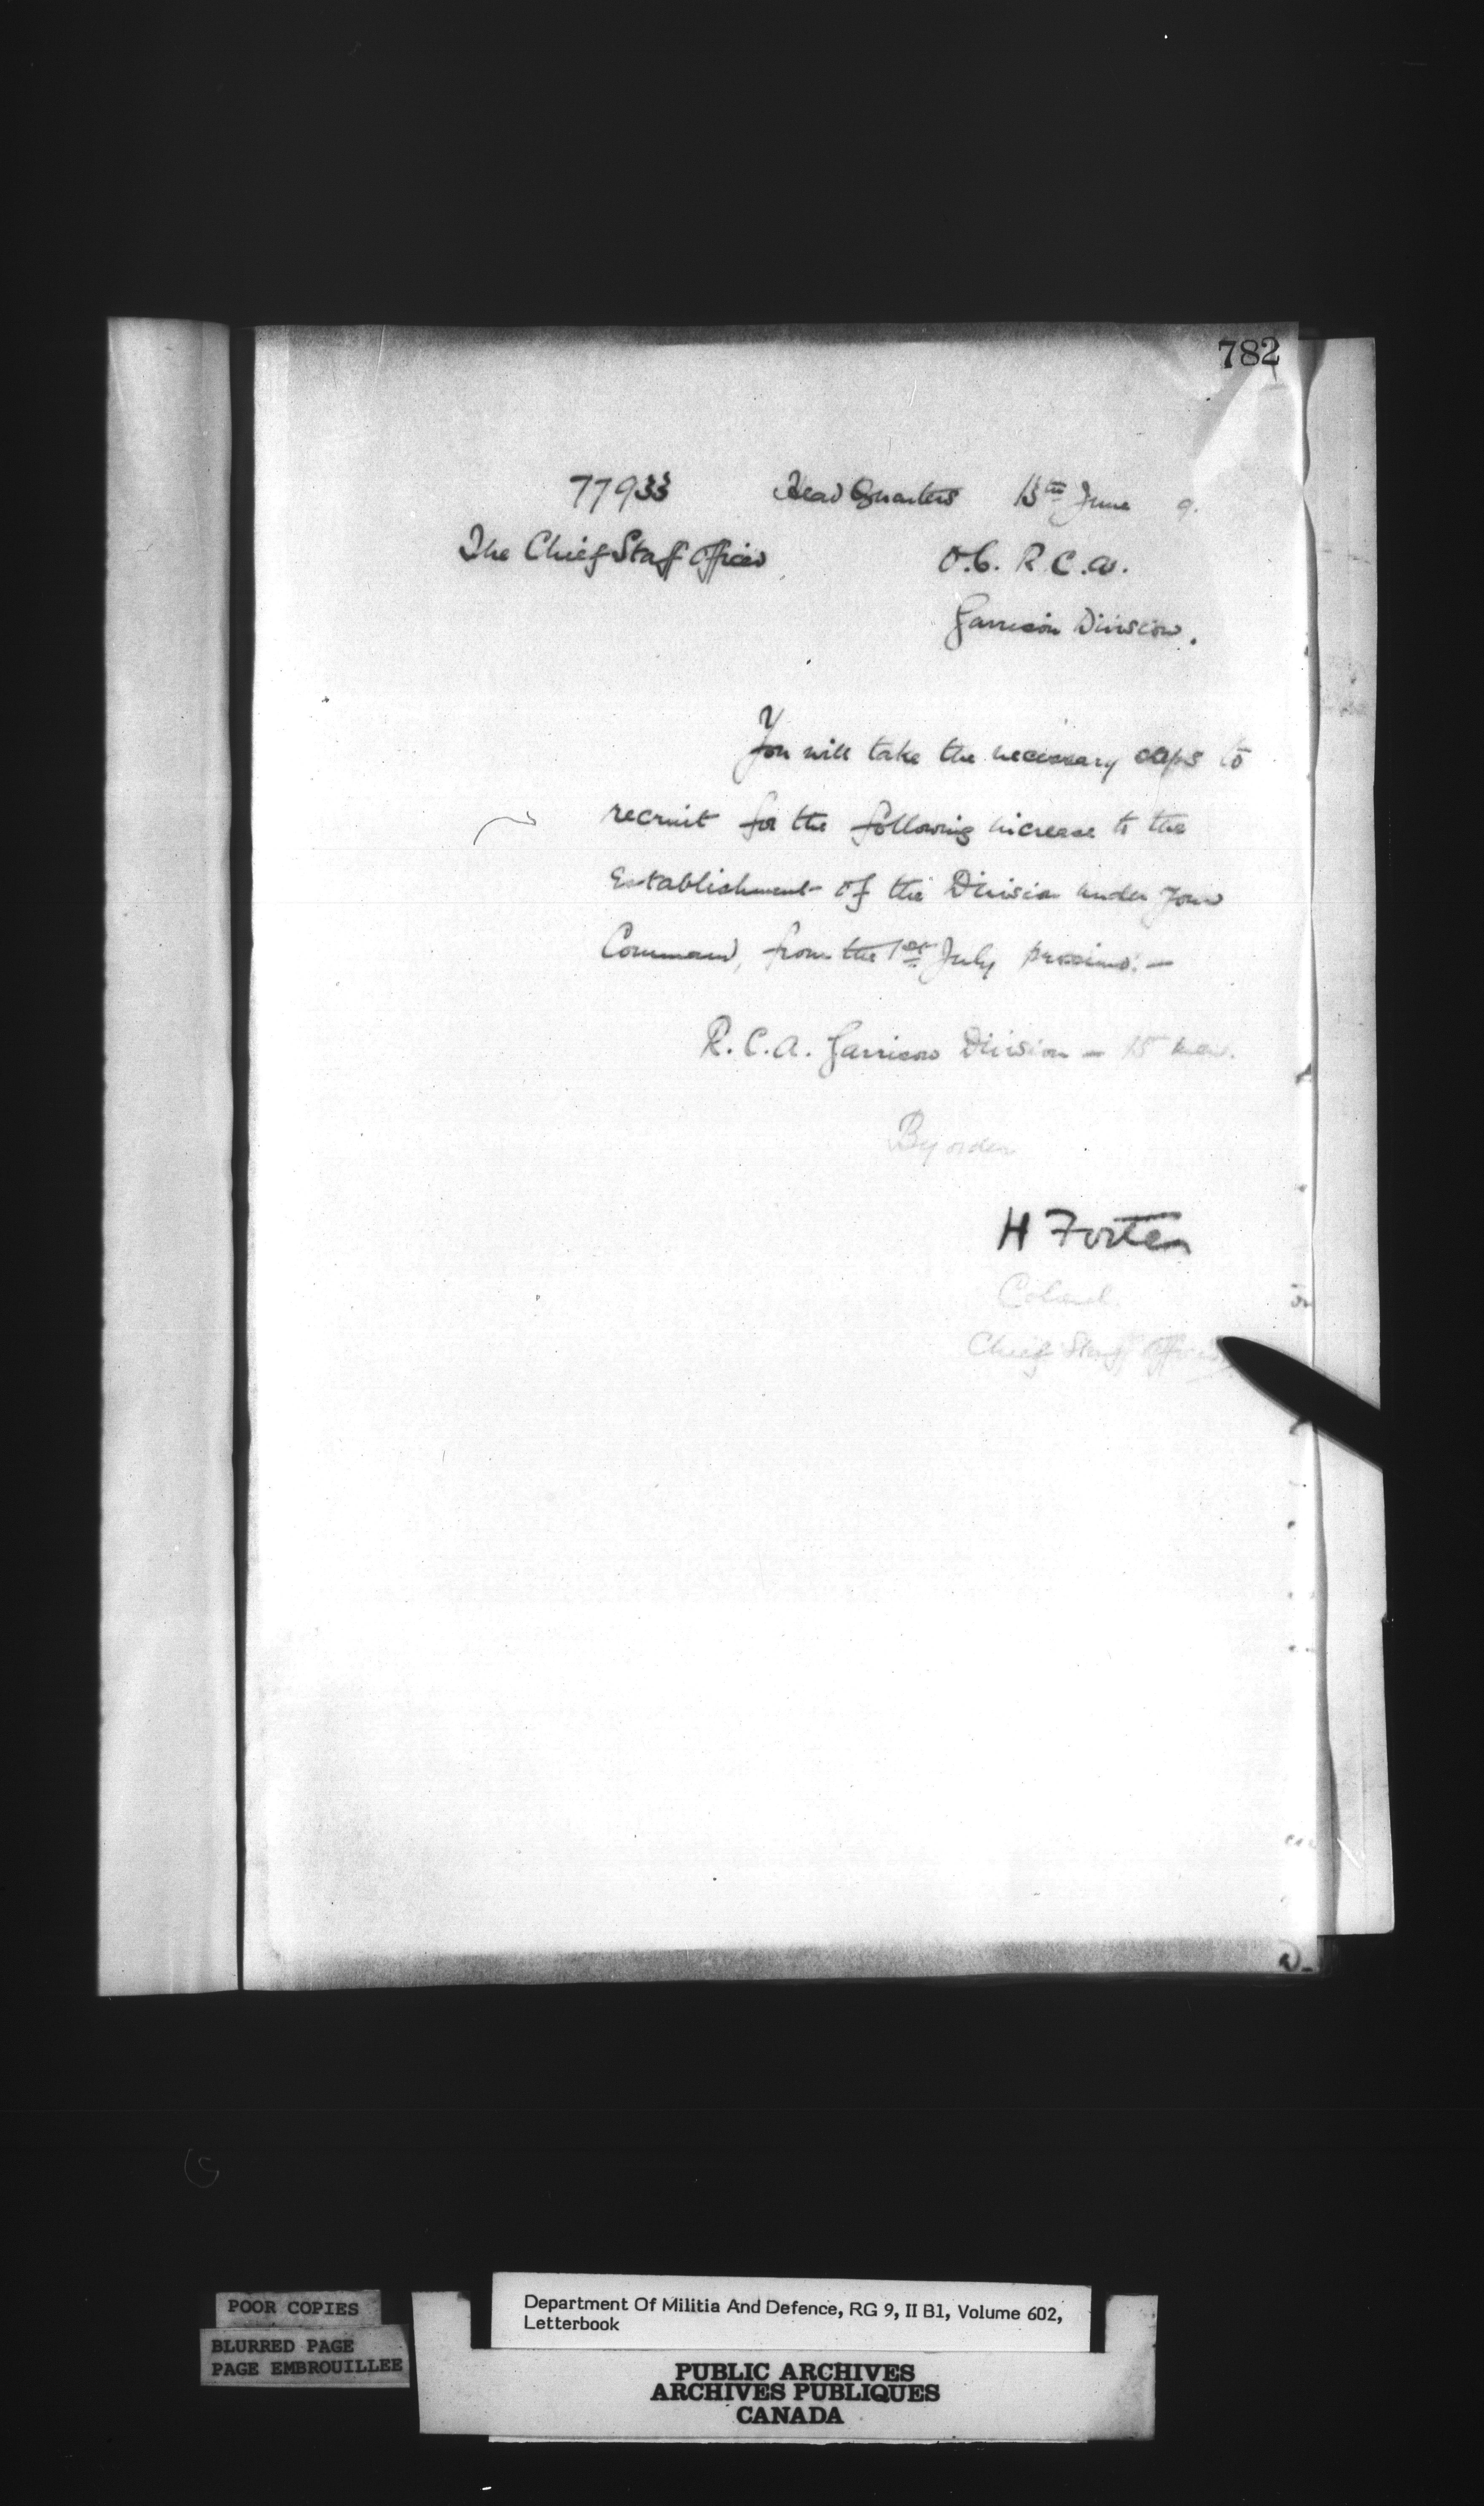 782
77933 Head Quarters 13th June 9.
The Chief Staff Officer O.C. R.C.A.
Garrison Division.
You will take the necessary steps to
recruit for the following increase to the
Establishment of the Division under your
Command, from the 1st July proximo:—
R.C.A. Garrison Division — 15 men.
By order
H Foster
Colonel
Chief Staff Officer
POOR COPIES
BLURRED PAGE
PAGE EMBROUILLEE
Department Of Militia And Defence, RG 9, II B1, Volume 602,
Letterbook
PUBLIC ARCHIVES
ARCHIVES PUBLIQUES
CANADA